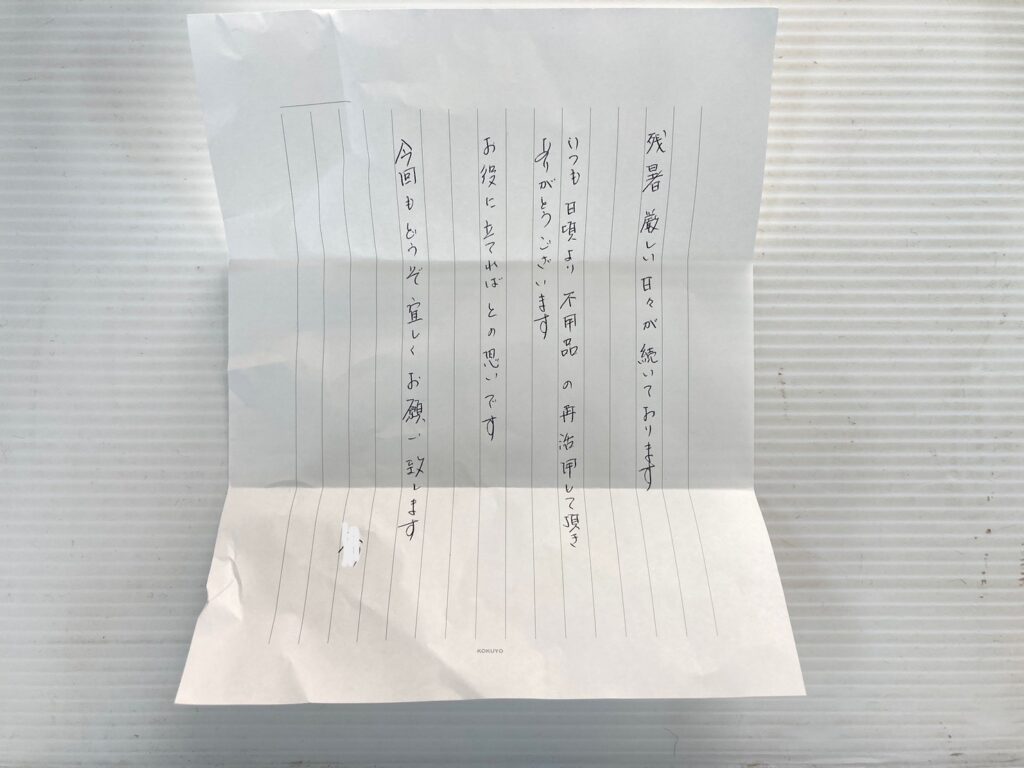 残暑厳しい日々が続いております
いつも日頃より不用品の再活用して頂き
ありがとうございます
お役に立てればとの思いです
今回もどうぞ宜しくお願い致します
KOKUYO